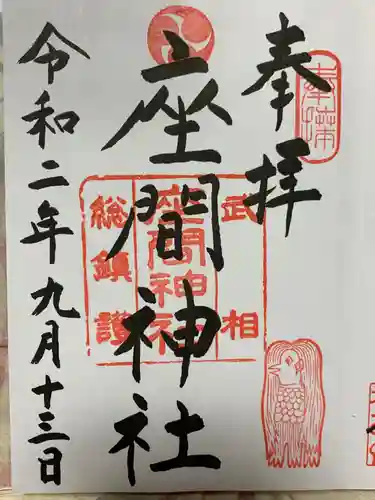 奉拝
座間神社
武相
座間神社
総鎮護
令和二年九月十三日